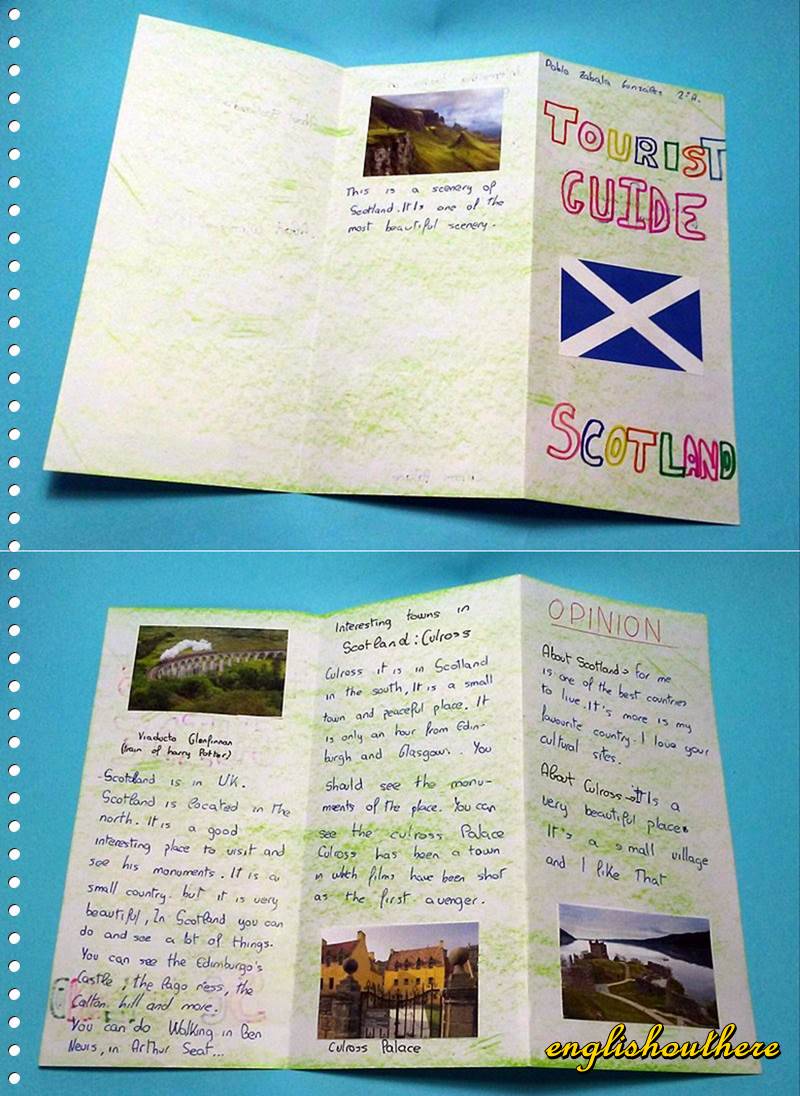 Pablo Zabala González 2ºA.
TOURIST
GUIDE
SCOTLAND
This is a scenery of
Scotland. It Is one of the
most beautiful scenery.
Viaducto Glenfinnan
(train of harry Potter)
Scotland is in UK.
Scotland is located in the
north. It is a good
interesting place to visit and
see his monuments. It is a
small country. but it is very
beautiful, In Scotland you can
do and see a lot of things.
You can see the Edimburgo's
Castle, the Lago ness, the
Calton hill and more.
You can do Walking in Ben
Nevis, in Arthur Seat...
Interesting towns in
Scotland: Culross
Culross it is in Scotland
in the south, It is a small
town and peaceful place. It
is only an hour from Edin-
burgh and Glasgow. You
should see the monu-
ments of the place. You can
see the culross Palace
Culross has been a town
in which films have been shot
as the first avenger.
Culross Palace
OPINION
About Scotland→ for me
is one of the best countries
to live. It's more is my
favourite country. I love your
cultural sites.
About Culross→It Is a
very beautiful place
It's a small village
and I like That
englishouthere